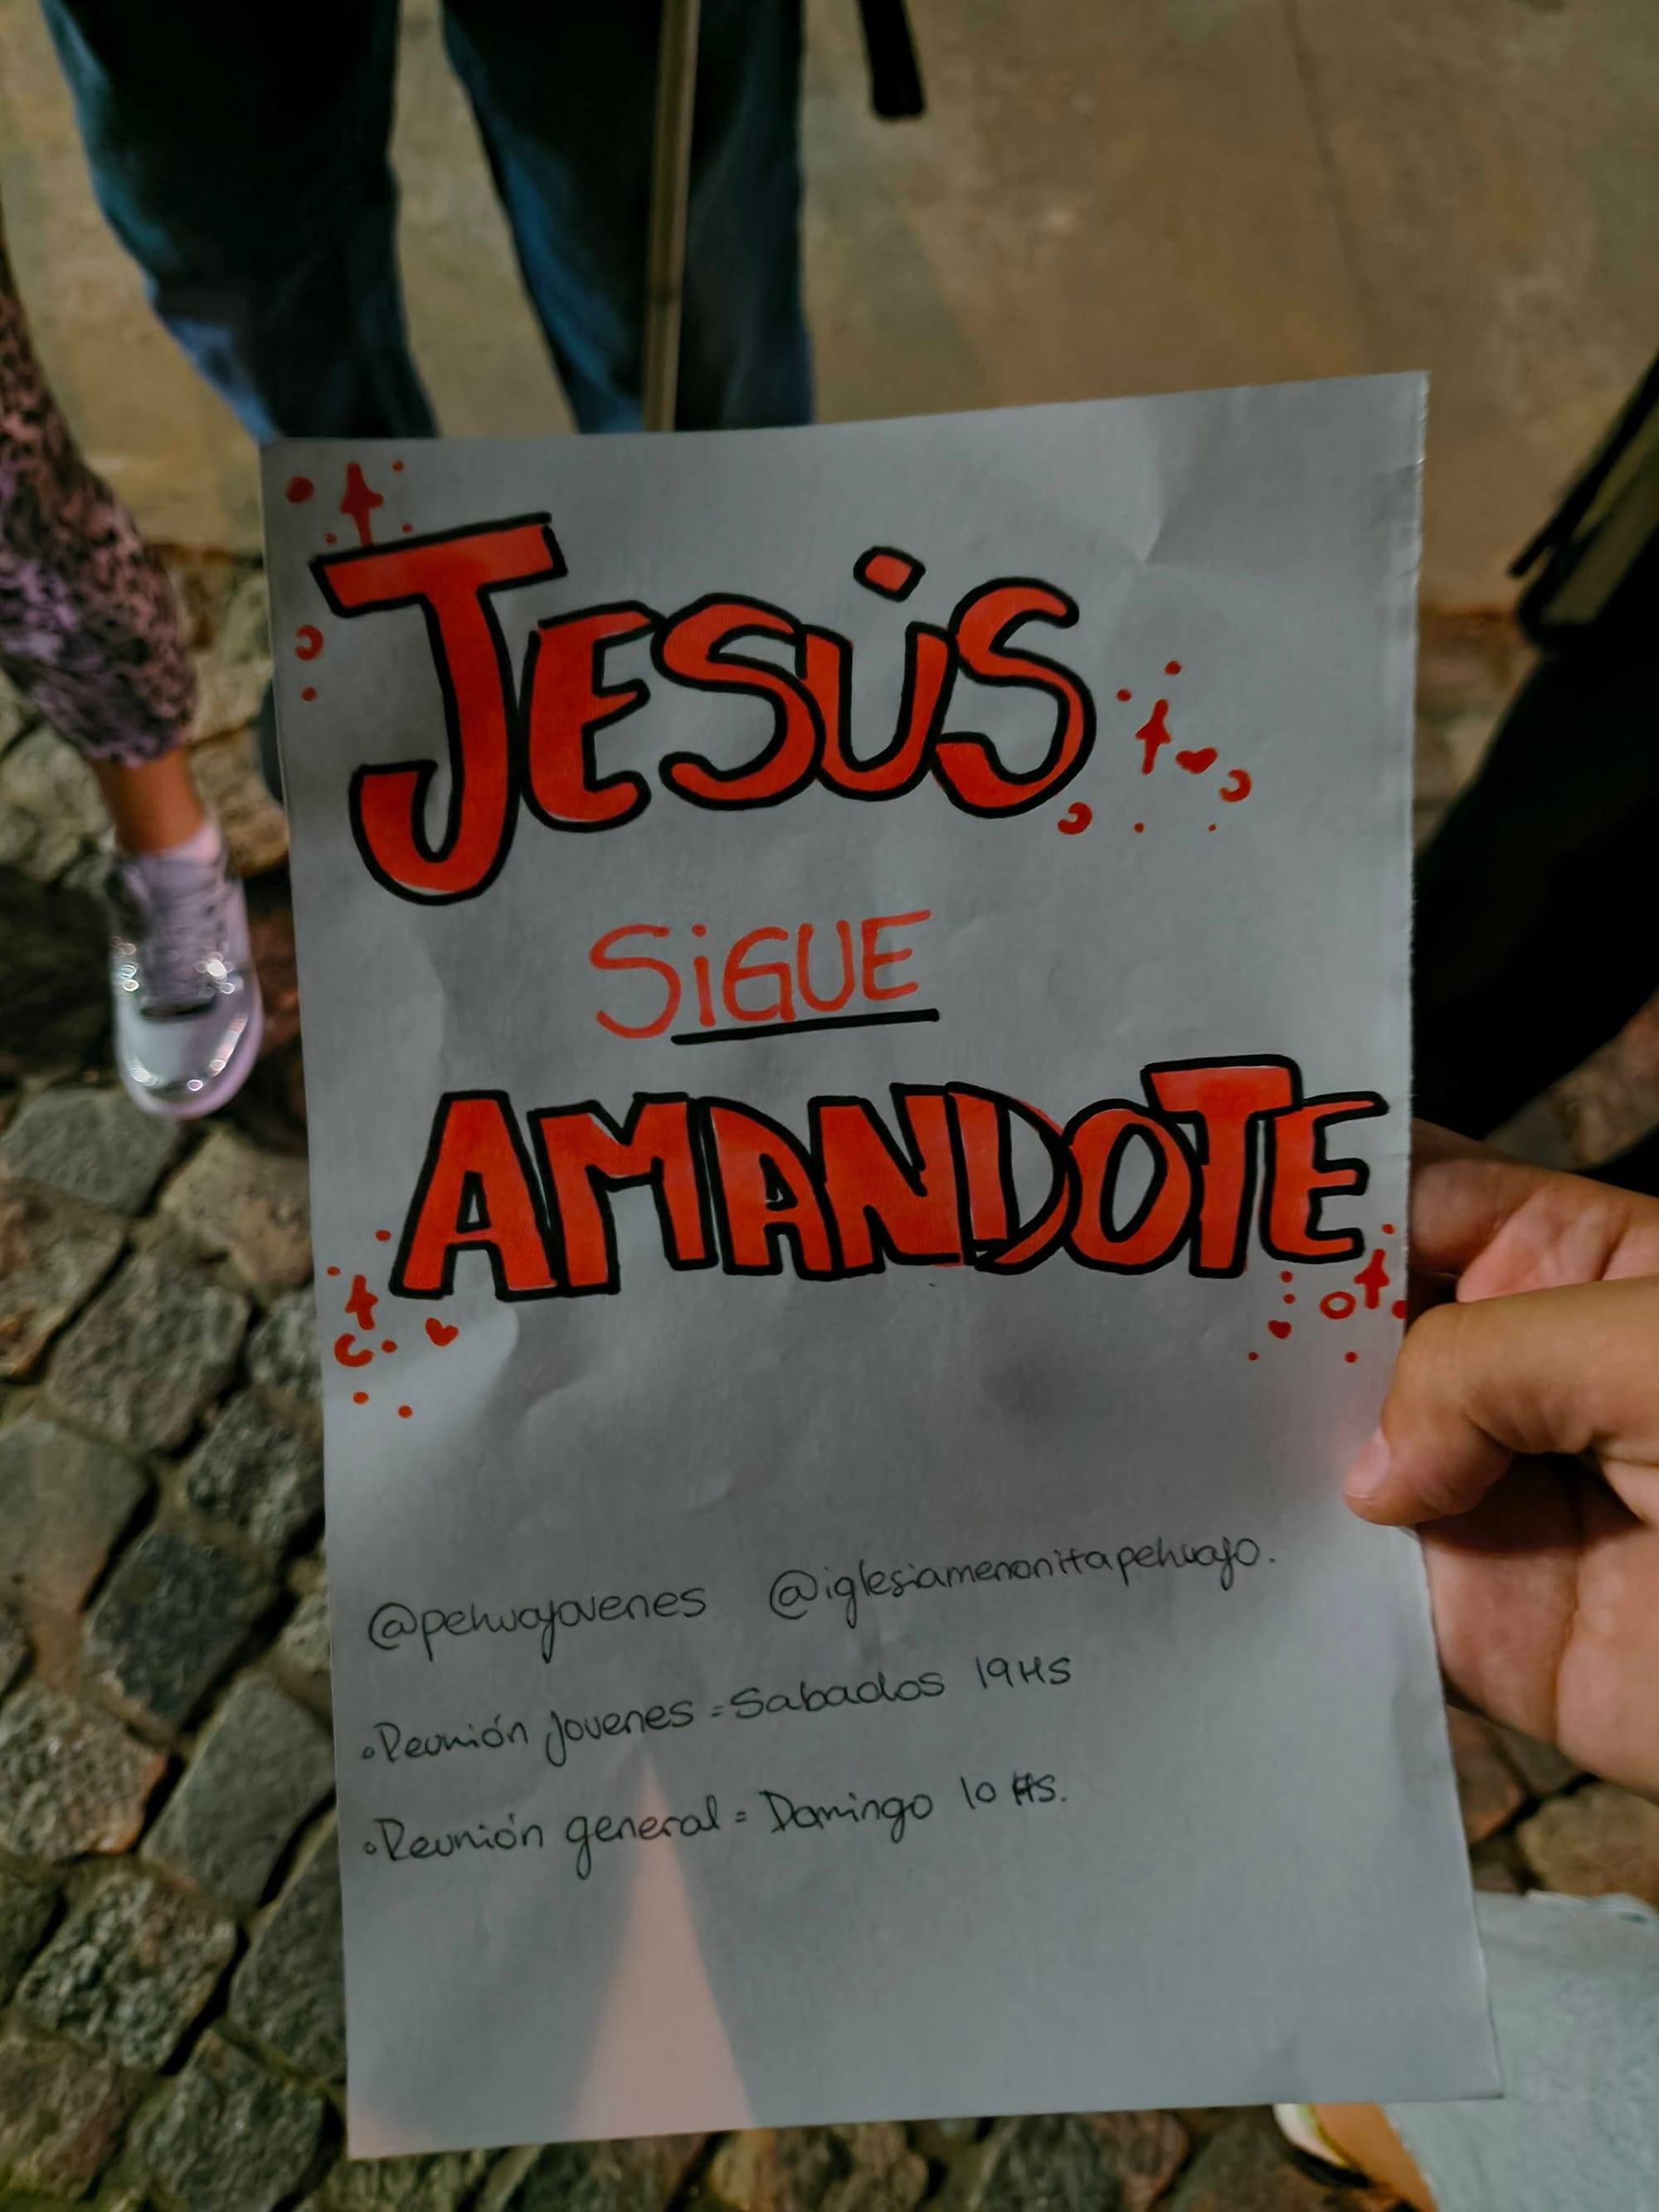 JESUS
SiGUE
AMANDOTE
@pehuajovenes @iglesiamenonitapehuajo.
Reunión Jovenes = Sabados 19 HS
Reunión general = Domingo 10 HS.